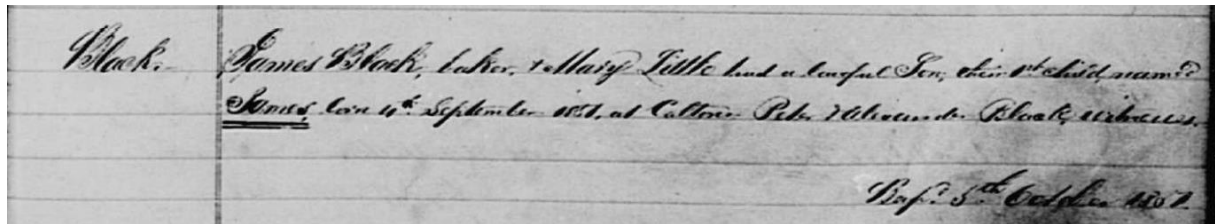 Black. James Black, baker, & Mary Little had a lawful Son, their 1st child named
James, born 4th September 1851, at Calton. Peter & Alexander Black, witnesses.
Bapd. 5th October 1851